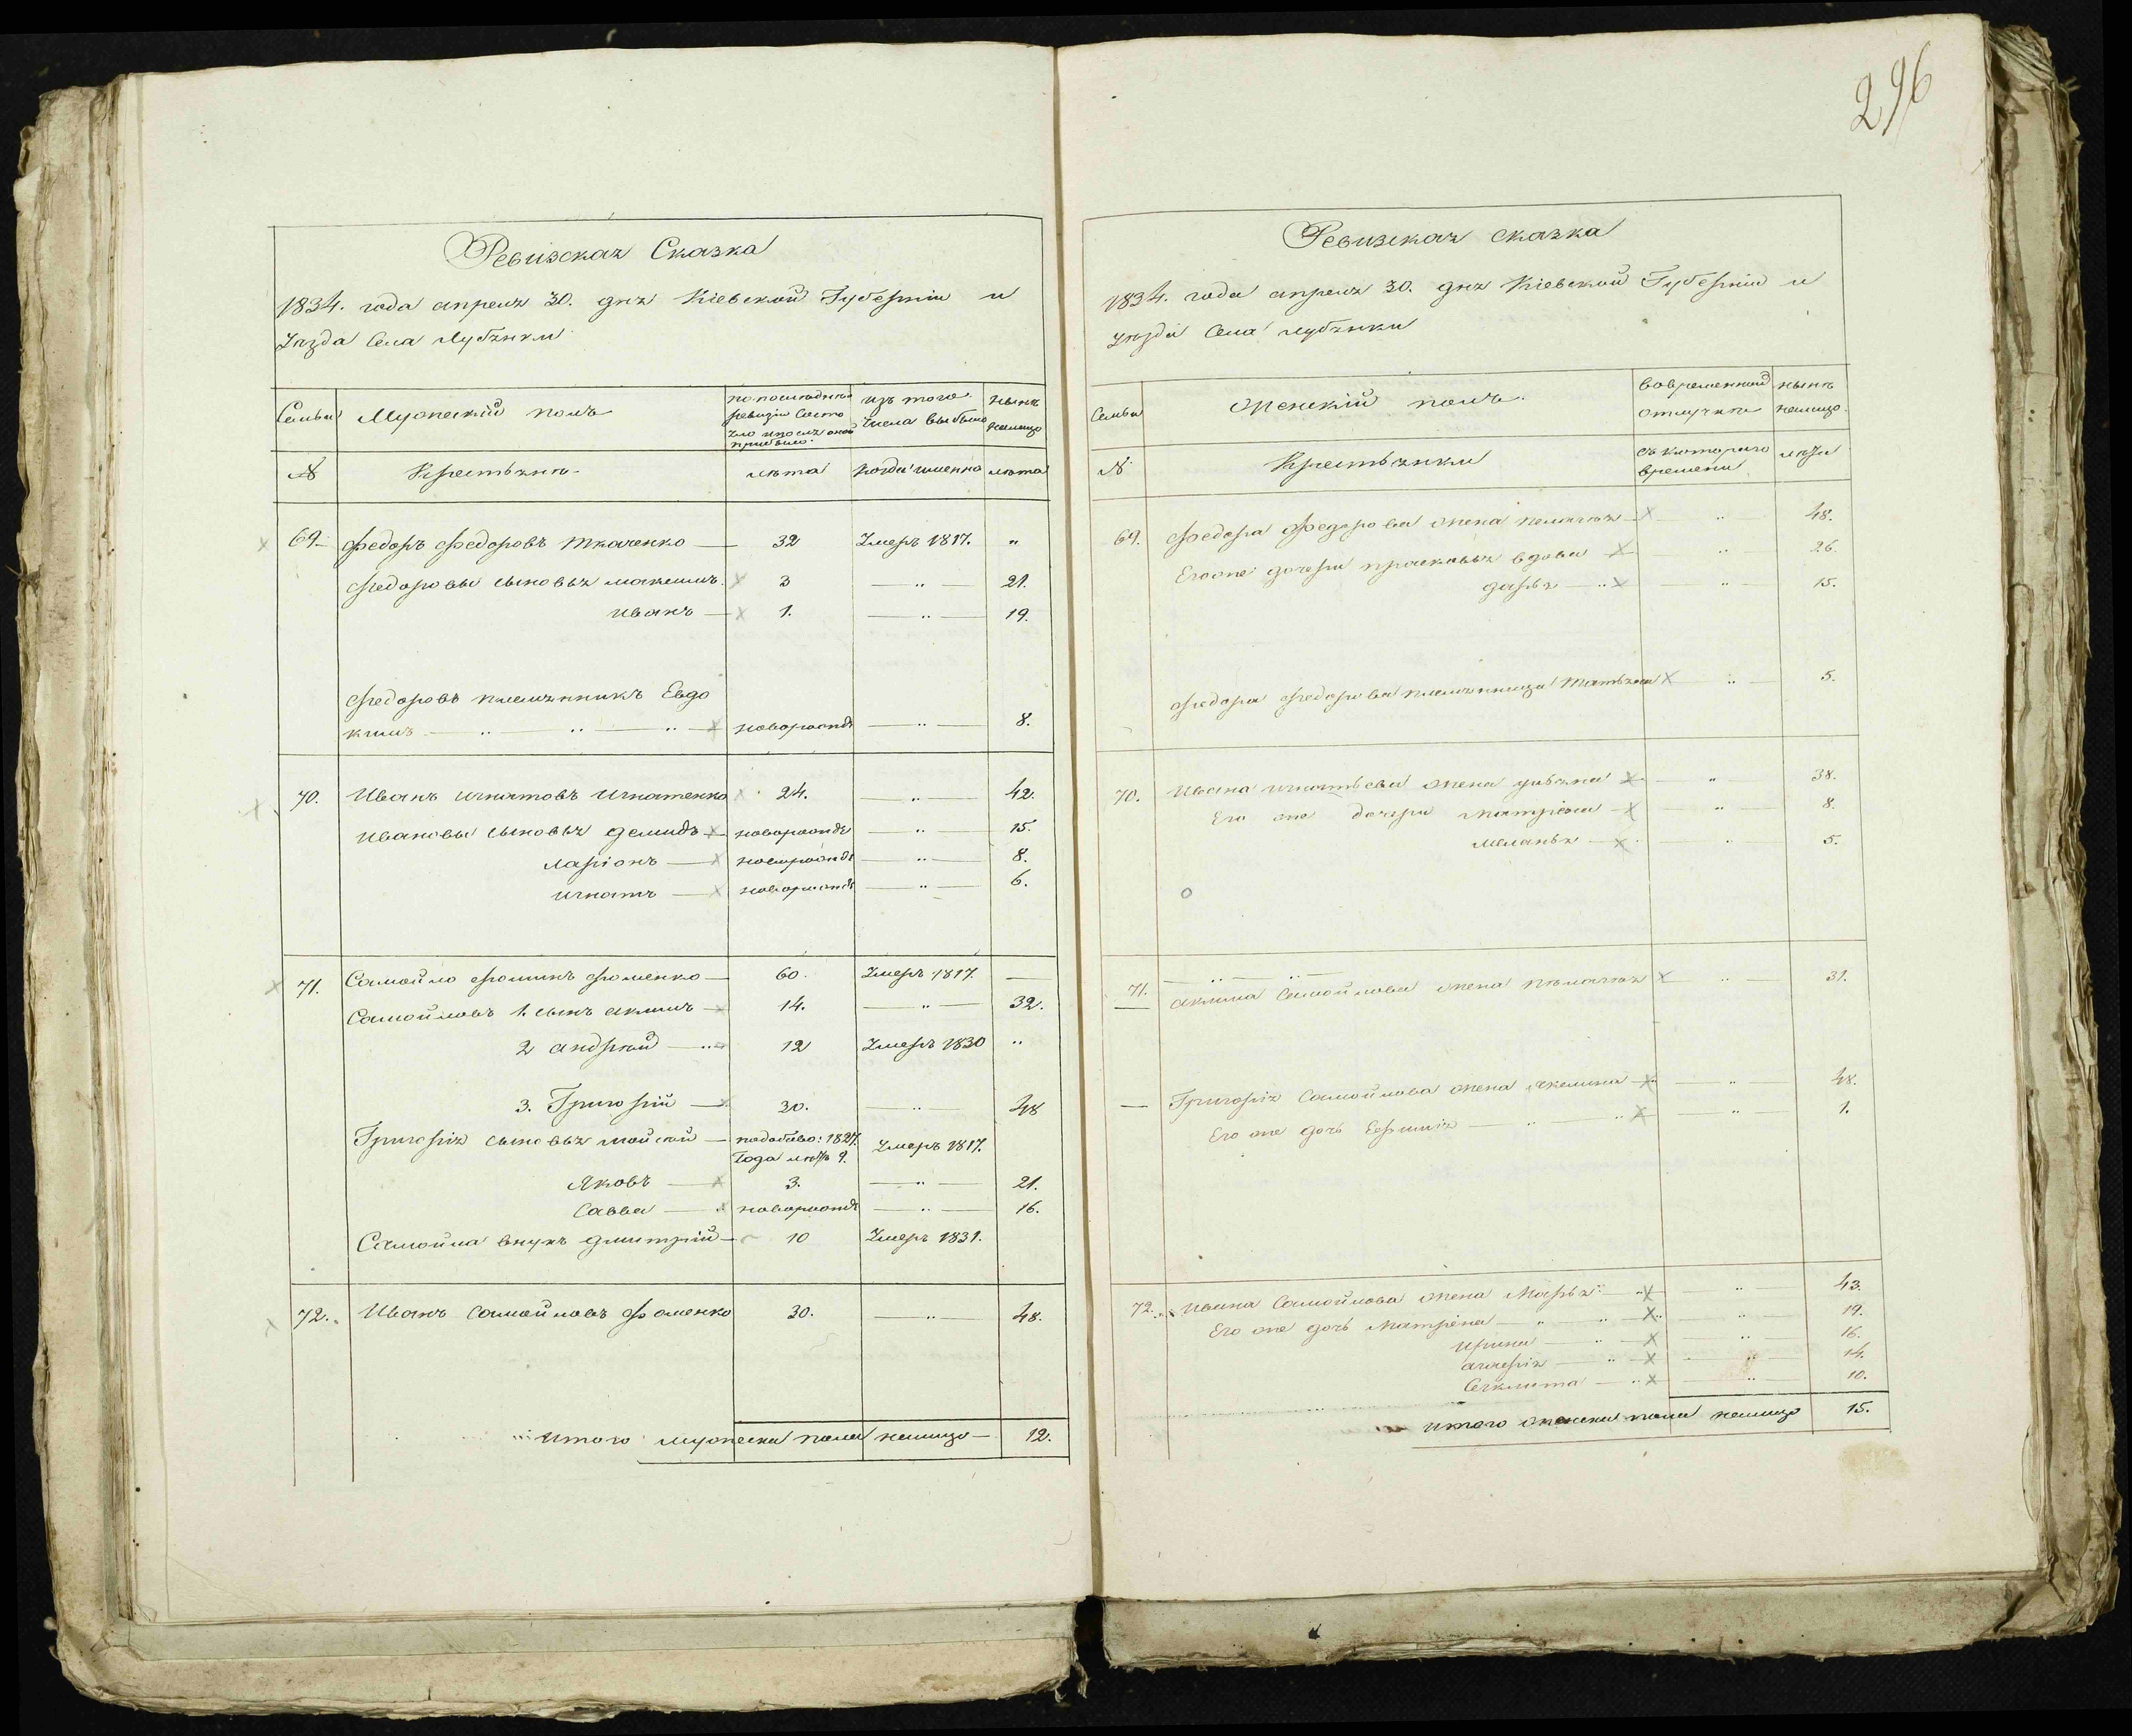 296
Ревизская Сказка
1834. года апреля 30. дня Кіевской Губерніи и
Уезда Села Лубянки
Семьи
Мужескій полъ
по последней ревизіи состояло и после оной прибыло
изъ того числа выбыло
ныне налицо
№
Крестьяне
лета
когда именно
лета
69. Федоръ Федоровъ Ткаченко — 32 Умеръ 1817. „
Федоровы сыновья Максимъ 3 — „ — 21.
Иванъ — 1. — „ — 19.
Федоровъ племянникъ Евдо
кимъ — „ — „ — „ — новорожд — „ — 8.
70. Иванъ Игнатовъ Игнатенко 24. — „ — 42.
Ивановы сыновья Демидъ новорожде — „ 15.
Ларіонъ — новорожде — „ — 8.
Игнатъ — новорожде — „ — 6.
71. Самойло Фоминъ Фоменко — 60. Умеръ 1817. —
Самойловъ 1. сынъ Акимъ — 14. — „ — 32.
2 Андрей — „ 12 Умеръ 1830 „
3. Григорій — 30. — „ — 48
Григорія сыновья Мойсей — 1827. Года летъ 9. Умеръ 1817.
Яковъ — 3. — „ — 21.
Савва — новорожде — „ — 16.
Самойла внукъ Дмитрій — 10 Умеръ 1831.
72. Иванъ Самойловъ Фоменко 30. — „ — 48.
Итого мужеска пола налицо — 12.
Ревизская сказка
1834. года апреля 30. дня Кіевской Губерніи и
Уезда Села Лубянки
Семьи
Женскій полъ.
во временной отлучке
ныне налицо.
№
Крестьянки
съ котораго времени
лета
69. Федора Федорова жена Пелагея — „ — 48.
Его же дочери Прасковья вдова — „ — 26.
Дарья — „ — „ — 15.
Федора Федорова племянница Татьяна „ — 5.
70. Ивана Игнатьева жена Ульяна — „ — 38.
Его же дочери Матрiона — „ — 8.
Меланья — „ — 5.
— „ — „ —
71. Акима Самойлова жена Пелагея „ — 31.
— Григорія Самойлова жена Акелина — „ — 48.
Его же дочь Евфимія — „ — „ — „ — 1.
72. Ивана Самойлова жена Марья „ — „ — 43.
Его же дочь Матрена — „ — „ — „ — 19.
Ирина — „ — „ — 16.
Агафія — „ — „ — 14.
Секлита — „ — „ — 10.
Итого женска пола налицо 15.